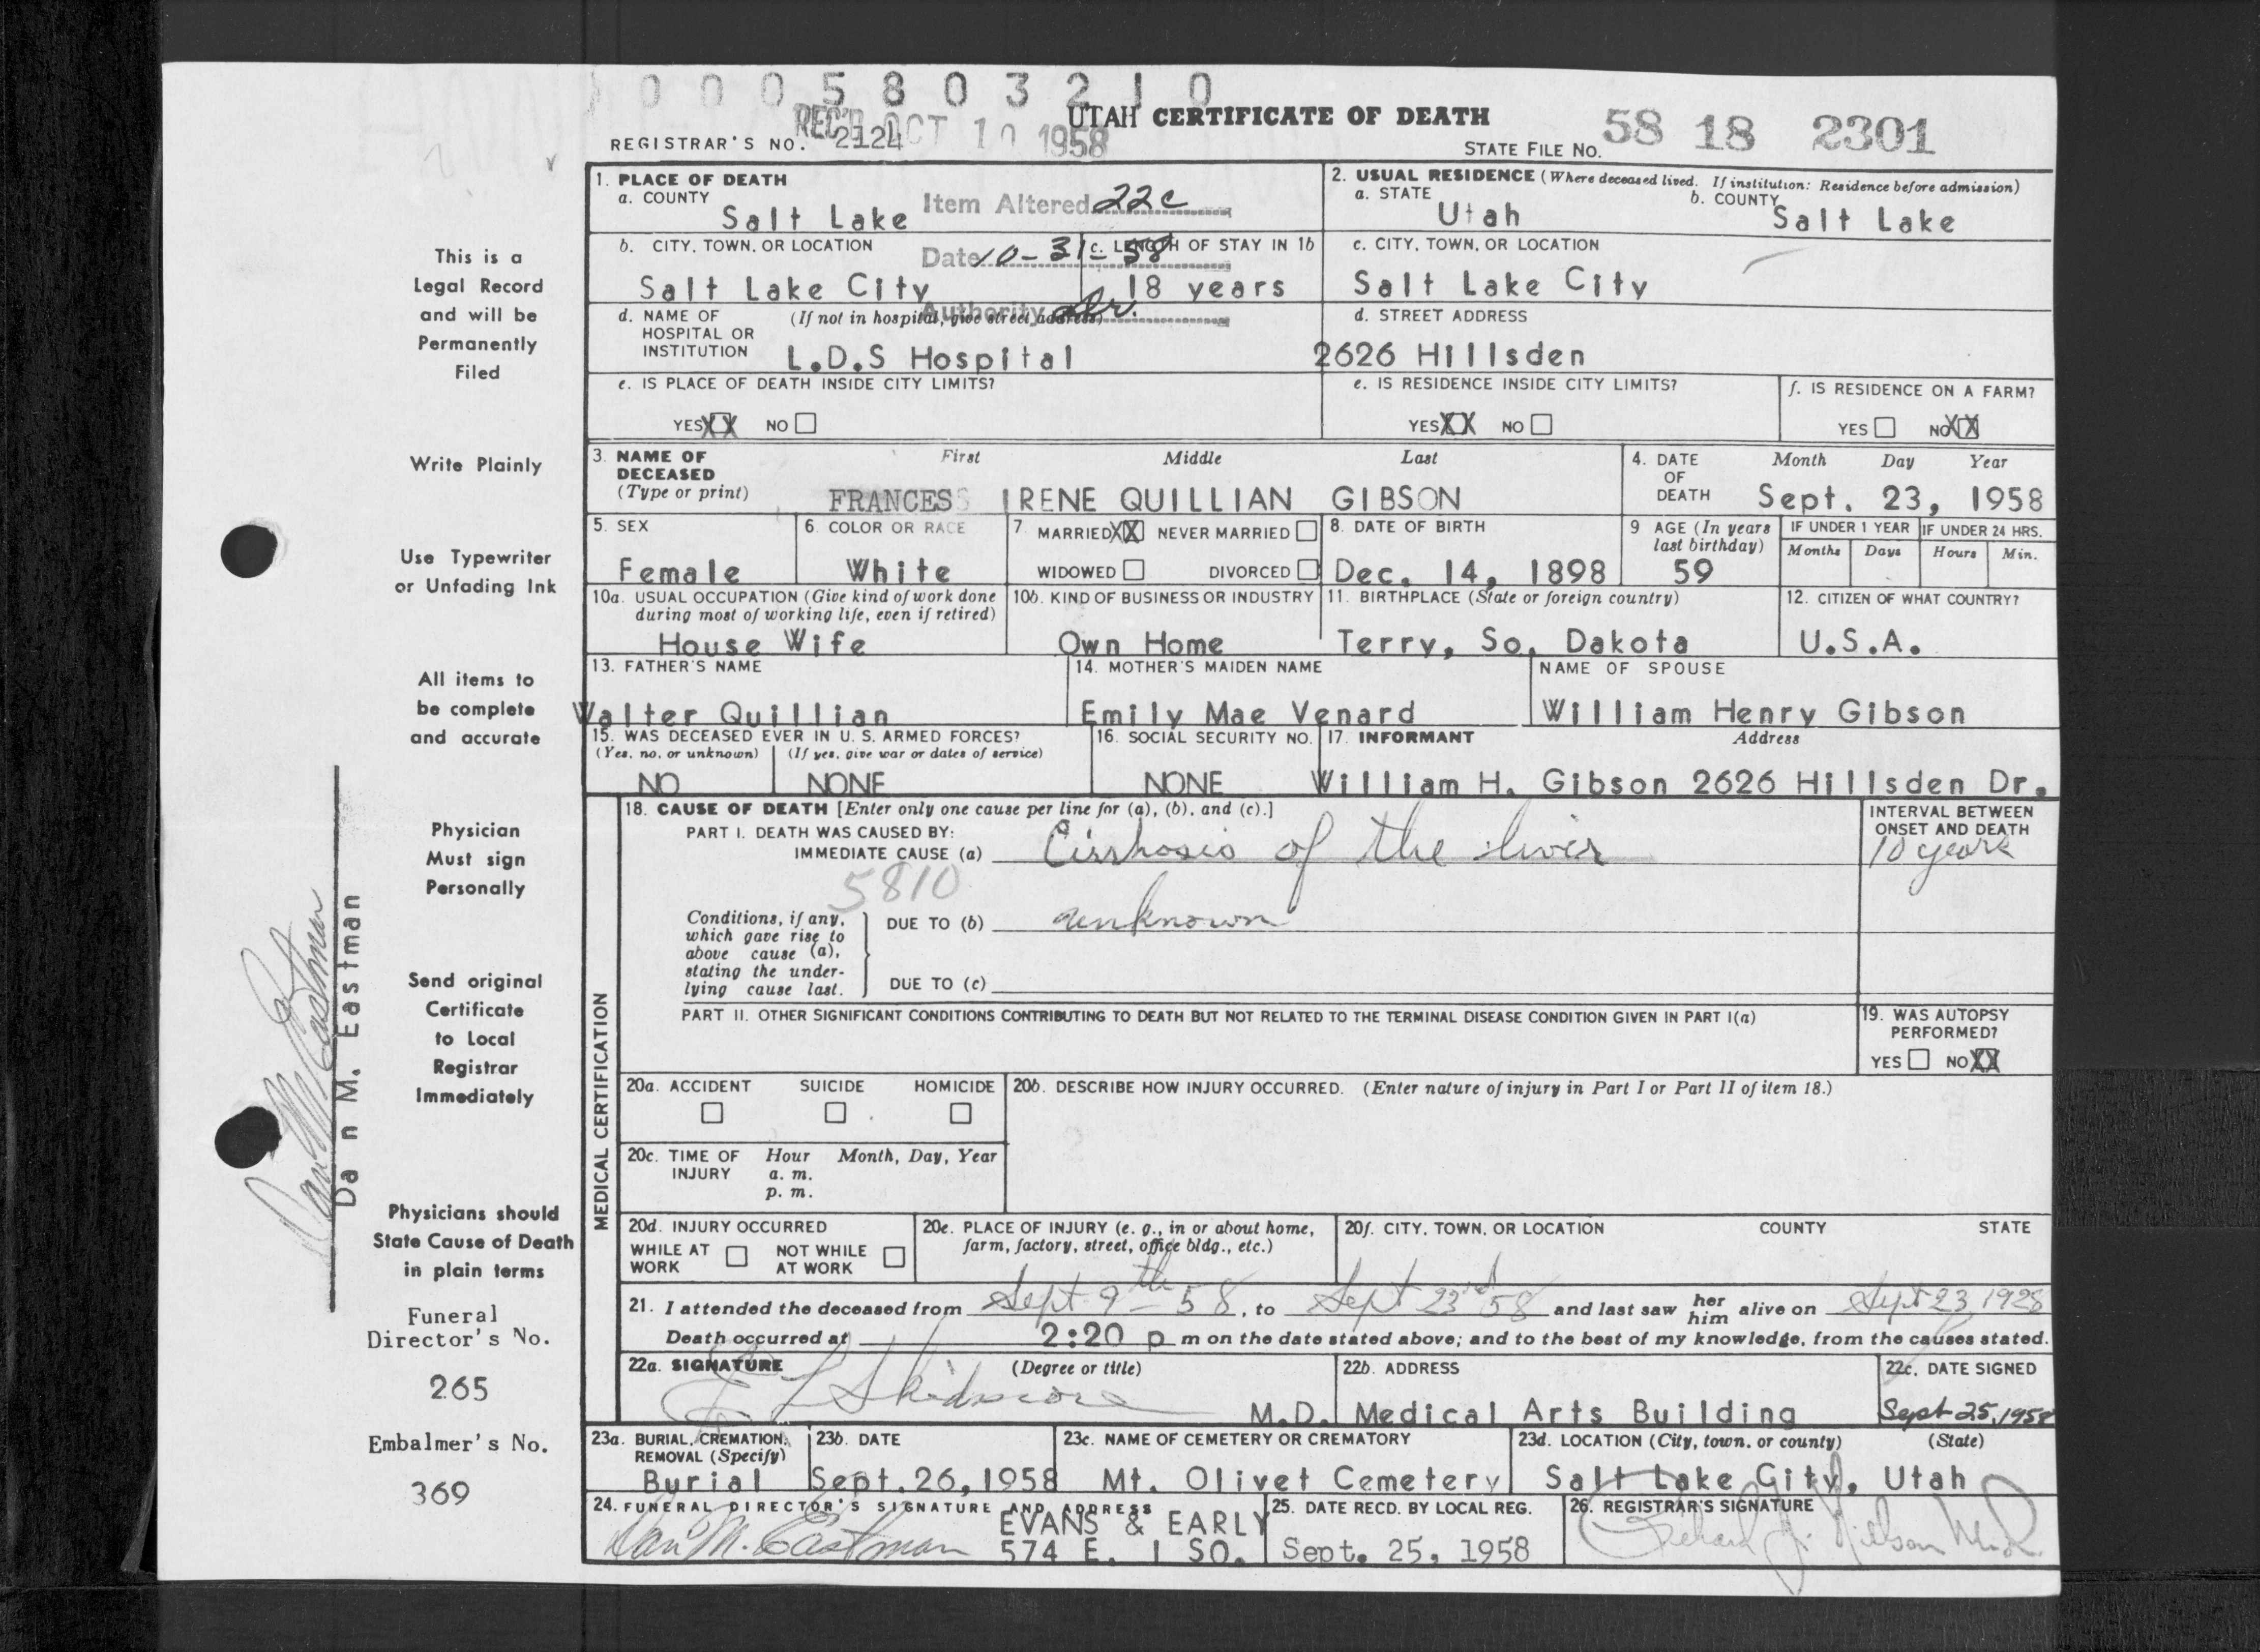 0 0 0 5 8 0 3 2 1 0
UTAH CERTIFICATE OF DEATH
REGISTRAR'S NO. 2124
REC'D OCT 10 1958
STATE FILE NO. 58 18 2301
1. PLACE OF DEATH
a. COUNTY
Salt Lake
Item Altered 22c
2. USUAL RESIDENCE (Where deceased lived. If institution: Residence before admission)
a. STATE
Utah
b. COUNTY
Salt Lake
b. CITY, TOWN, OR LOCATION
Salt Lake City
Date 10-31-58
c. LENGTH OF STAY IN 1b
18 years
c. CITY, TOWN, OR LOCATION
Salt Lake City
Authority Dr.
d. NAME OF HOSPITAL OR INSTITUTION
(If not in hospital, give street address)
L.D.S Hospital
d. STREET ADDRESS
2626 Hillsden
e. IS PLACE OF DEATH INSIDE CITY LIMITS?
YES XX NO
e. IS RESIDENCE INSIDE CITY LIMITS?
YES XX NO
f. IS RESIDENCE ON A FARM?
YES NO XX
3. NAME OF DECEASED
(Type or print)
First Middle Last
FRANCES IRENE QUILLIAN GIBSON
4. DATE OF DEATH
Month Day Year
Sept. 23, 1958
5. SEX
Female
6. COLOR OR RACE
White
7 MARRIED XX NEVER MARRIED
WIDOWED DIVORCED
8. DATE OF BIRTH
Dec. 14, 1898
9 AGE (In years last birthday)
59
IF UNDER 1 YEAR
Months Days
IF UNDER 24 HRS.
Hours Min.
10a. USUAL OCCUPATION (Give kind of work done during most of working life, even if retired)
House Wife
10b. KIND OF BUSINESS OR INDUSTRY
Own Home
11. BIRTHPLACE (State or foreign country)
Terry, So. Dakota
12. CITIZEN OF WHAT COUNTRY?
U.S.A.
13. FATHER'S NAME
Walter Quillian
14. MOTHER'S MAIDEN NAME
Emily Mae Venard
NAME OF SPOUSE
William Henry Gibson
15. WAS DECEASED EVER IN U. S. ARMED FORCES?
(Yes, no, or unknown) (If yes, give war or dates of service)
NO NONE
16. SOCIAL SECURITY NO.
NONE
17. INFORMANT Address
William H. Gibson 2626 Hillsden Dr.
MEDICAL CERTIFICATION
18. CAUSE OF DEATH [Enter only one cause per line for (a), (b), and (c).]
PART I. DEATH WAS CAUSED BY:
IMMEDIATE CAUSE (a) Cirrhosis of the liver
INTERVAL BETWEEN ONSET AND DEATH
10 years
5810
Conditions, if any, which gave rise to above cause (a), stating the underlying cause last.
DUE TO (b) unknown
DUE TO (c)
PART II. OTHER SIGNIFICANT CONDITIONS CONTRIBUTING TO DEATH BUT NOT RELATED TO THE TERMINAL DISEASE CONDITION GIVEN IN PART I(a)
19. WAS AUTOPSY PERFORMED?
YES NO XX
20a. ACCIDENT SUICIDE HOMICIDE
20b. DESCRIBE HOW INJURY OCCURRED. (Enter nature of injury in Part I or Part II of item 18.)
20c. TIME OF INJURY
Hour Month, Day, Year
a. m.
p. m.
20d. INJURY OCCURRED
WHILE AT WORK NOT WHILE AT WORK
20e. PLACE OF INJURY (e. g., in or about home, farm, factory, street, office bldg., etc.)
20f. CITY, TOWN, OR LOCATION COUNTY STATE
21. I attended the deceased from Sept 9th - 58, to Sept 23rd 58 and last saw her him alive on Sept 23 1928
Death occurred at 2:20 p m on the date stated above; and to the best of my knowledge, from the causes stated.
22a. SIGNATURE (Degree or title)
Skidmore M.D.
22b. ADDRESS
Medical Arts Building
22c. DATE SIGNED
Sept 25, 1958
23a. BURIAL, CREMATION, REMOVAL (Specify)
Burial
23b. DATE
Sept. 26, 1958
23c. NAME OF CEMETERY OR CREMATORY
Mt. Olivet Cemetery
23d. LOCATION (City, town, or county) (State)
Salt Lake City, Utah
24. FUNERAL DIRECTOR'S SIGNATURE AND ADDRESS
Dan M. Eastman
EVANS & EARLY
574 E. 1 SO.
25. DATE RECD. BY LOCAL REG.
Sept. 25, 1958
26. REGISTRAR'S SIGNATURE
This is a
Legal Record
and will be
Permanently
Filed
Write Plainly
Use Typewriter
or Unfading Ink
All items to
be complete
and accurate
Physician
Must sign
Personally
Send original
Certificate
to Local
Registrar
Immediately
Physicians should
State Cause of Death
in plain terms
Funeral
Director's No.
265
Embalmer's No.
369
Dan M. Eastman
Dan M. Eastman